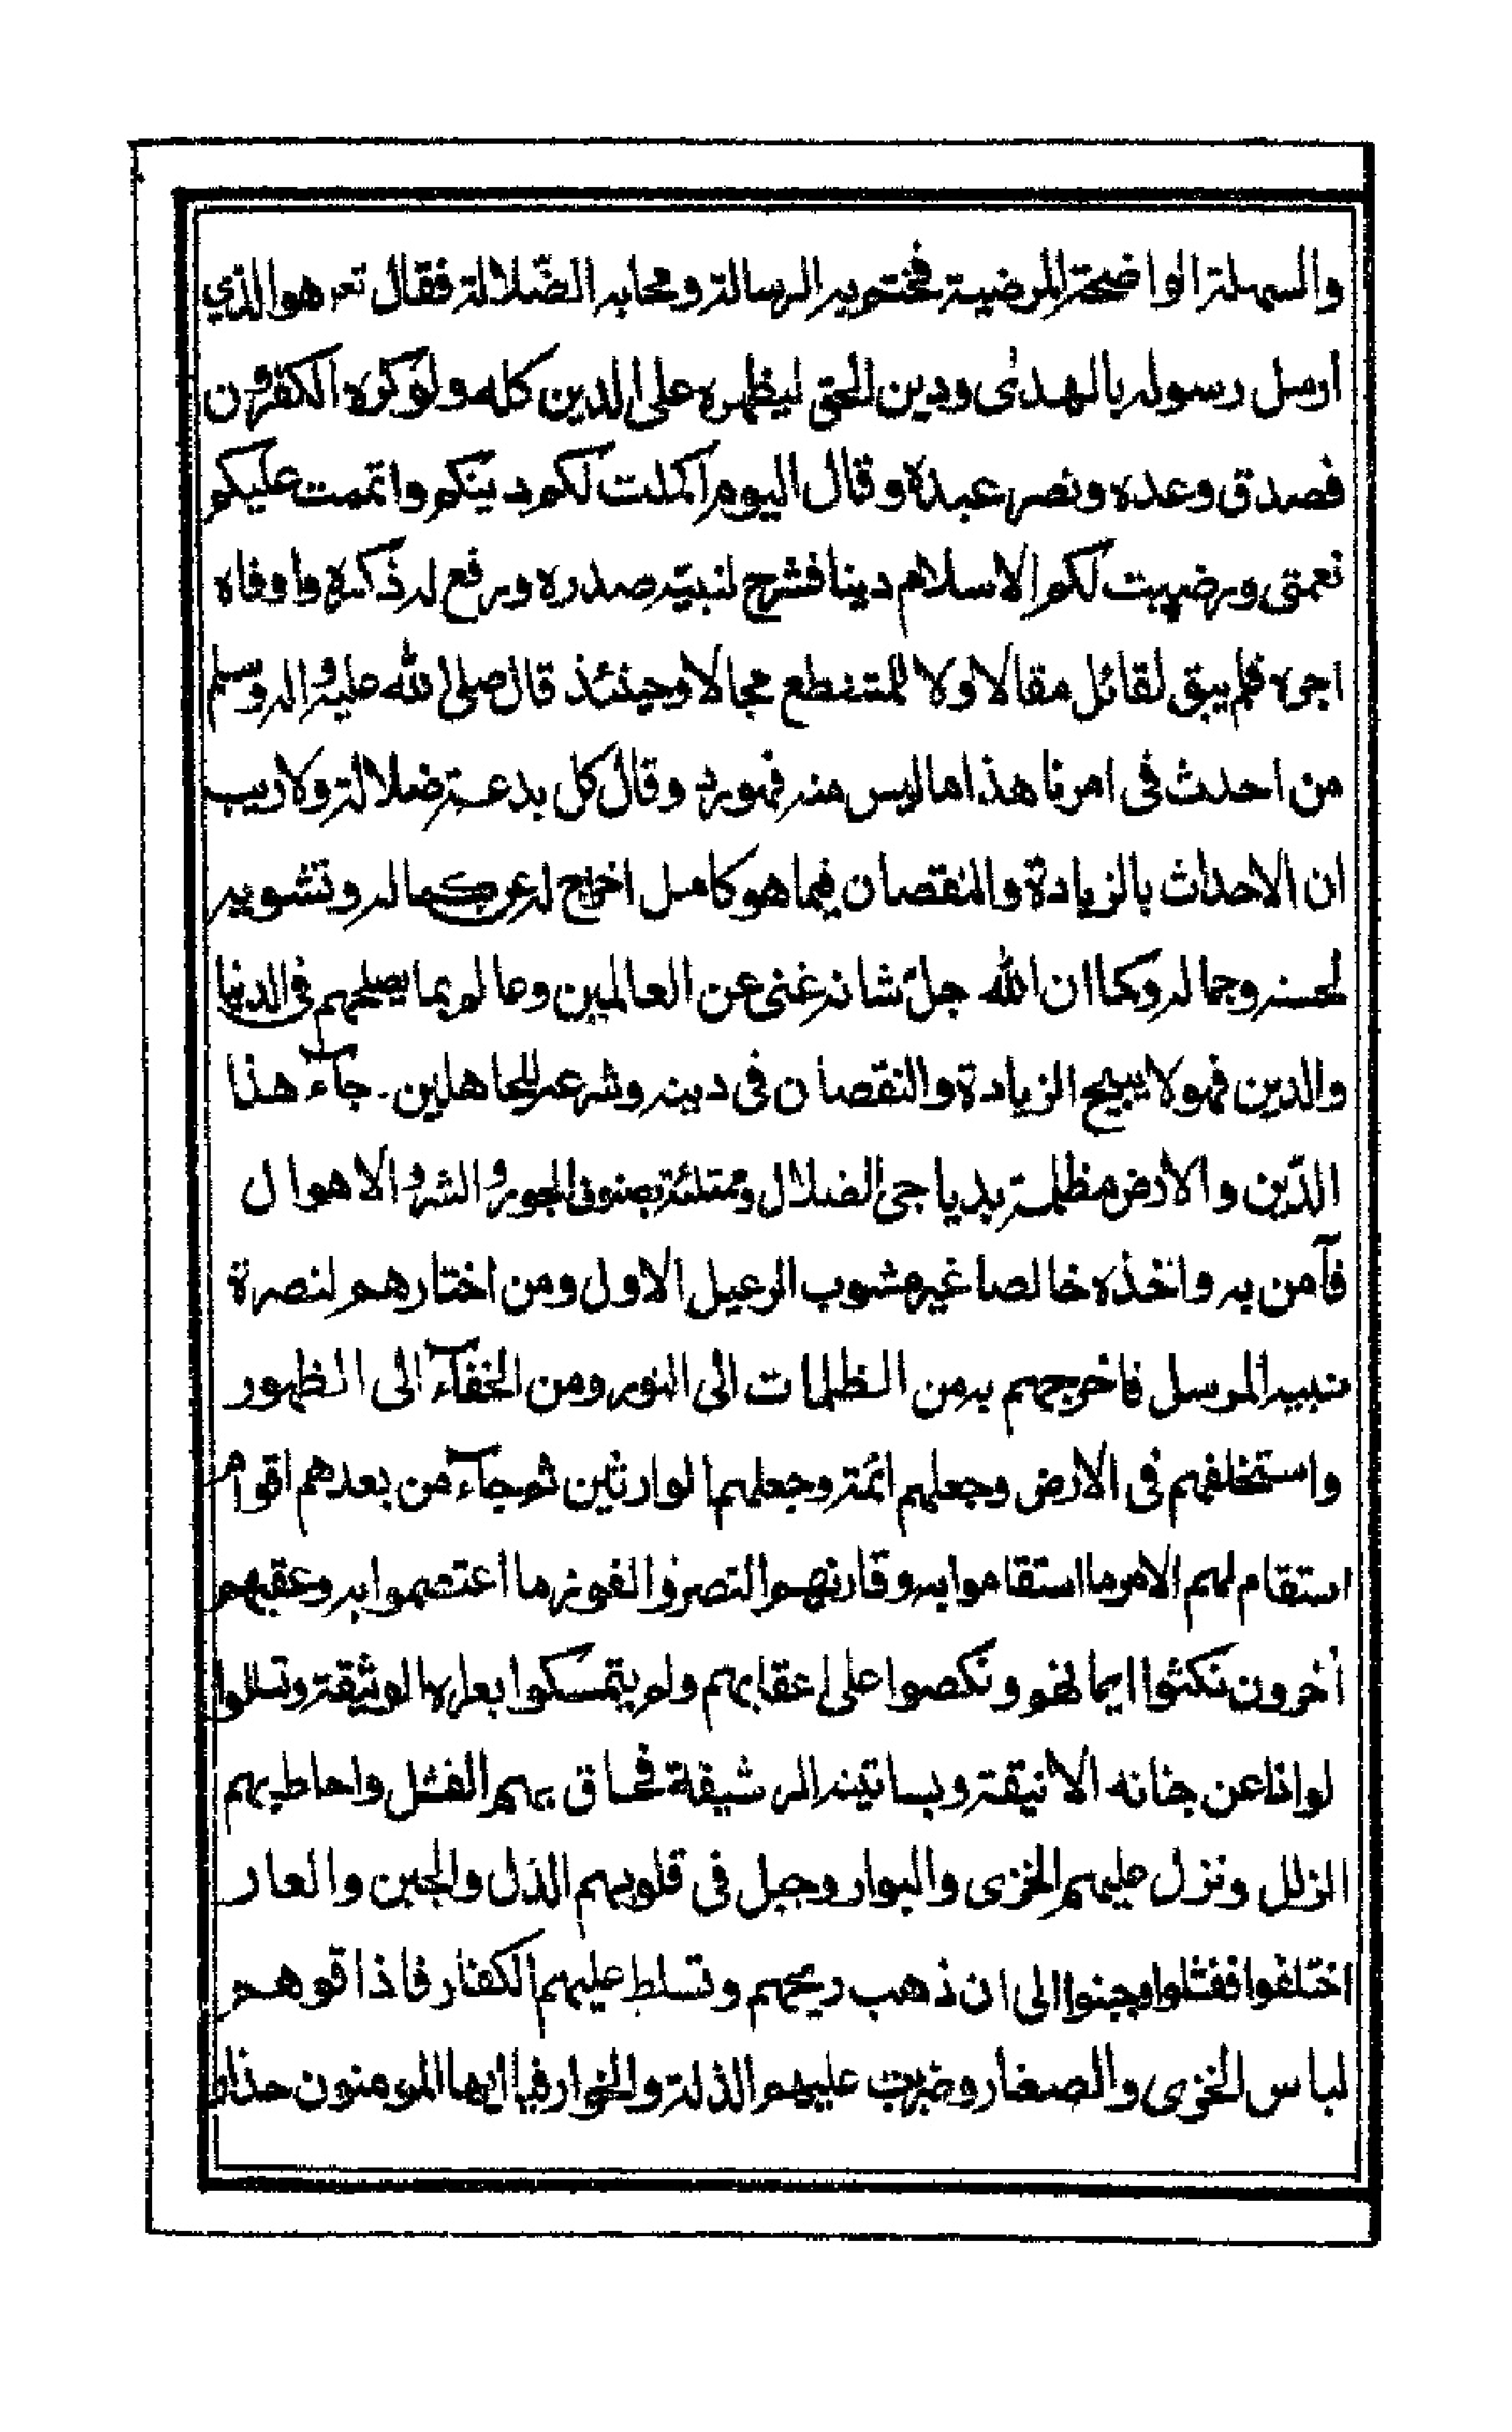 والسهلة الواضحة المرضية فختم به الرسالة ومحا به الضّلالة فقال تعم هو الذي
ارسل رسوله بالهدى ودين الحق ليظهره على الدين كله ولو كره الكفرون
فصدق وعده ونصر عبده وقال اليوم اكملت لكم دينكم واتممت عليكم
نعمتى ورضيت لكم الاسلام دينا فشرح لنبيّه صدره ورفع له ذكره واوفاه
اجره فلم يبق لقائل مقالا ولا للمتنطع مجالا وحينئذ قال صلى الله عليه واله وسلم
من احدث فى امرنا هذا ما ليس منه فهو رد وقال كل بدعة ضلالة ولا ريب
ان الاحداث بالزيادة والنقصان فيما هو كامل اخراج له عن كماله وتشويه
لحسنه وجماله وكما ان الله جل شانه غنى عن العالمين وعالم بما يصلحهم فى الدنيا
والدين فهو لا يبيح الزيادة والنقصان فى دينه وشرعه للجاهلين. جآء هذا
الدّين والارض مظلمة بدياجى الضلال وممتلئة بصنوف الجور والشر والاهوال
فآمن به واتخذه خالصا غير مشوب الرعيل الاول ومن اختارهم لنصرة
نبيه المرسل فاخرجهم به من الظلمات الى النور ومن الخفآء الى الظهور
واستخلفهم فى الارض وجعلهم ائمة وجعلهم الوارثين ثم جآء من بعدهم اقوام
استقام لهم الامر ما استقاموا به وقارنهم النصر والفوز ما اعتصموا به وعقبهم
أخرون نكثوا ايمانهم ونكصوا على اعقابهم ولم يتمسكوا بعراه الوثيقة وتسللوا
لواذا عن جنانه الانيقة وبساتينه الرشيقة فحاق بهم الفشل واحاط بهم
الزلل ونزل عليهم الخزى والبوار وجبل فى قلوبهم الذل والجبن والعار
اختلفوا ففشلوا وجبنوا الى ان ذهب ريحهم وتسلط عليهم الكفار فاذاقوهم
لباس الخزى والصغار وضربت عليهم الذلة والخوار فيا ايها المومنون حذار